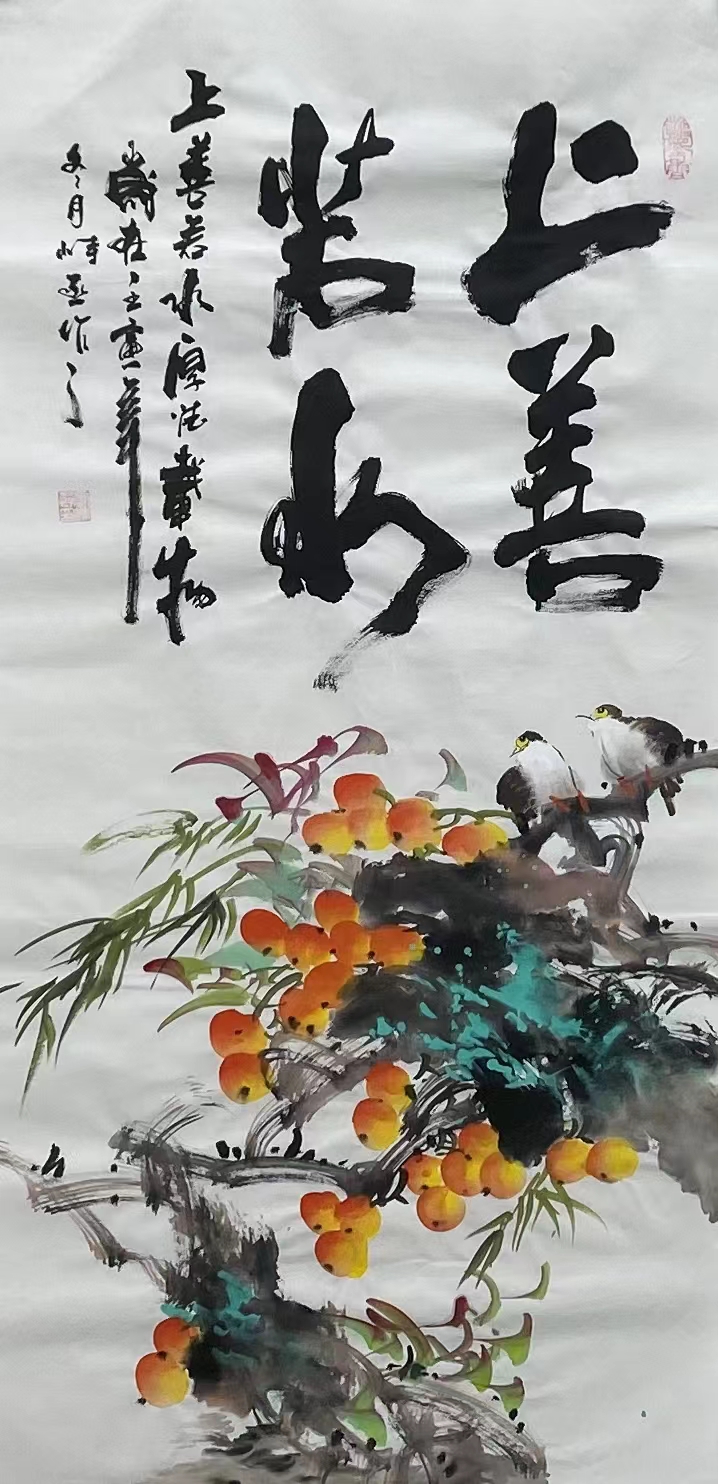 上善
若水
上善若水厚德载物
岁在壬寅年
冬月时丞作之